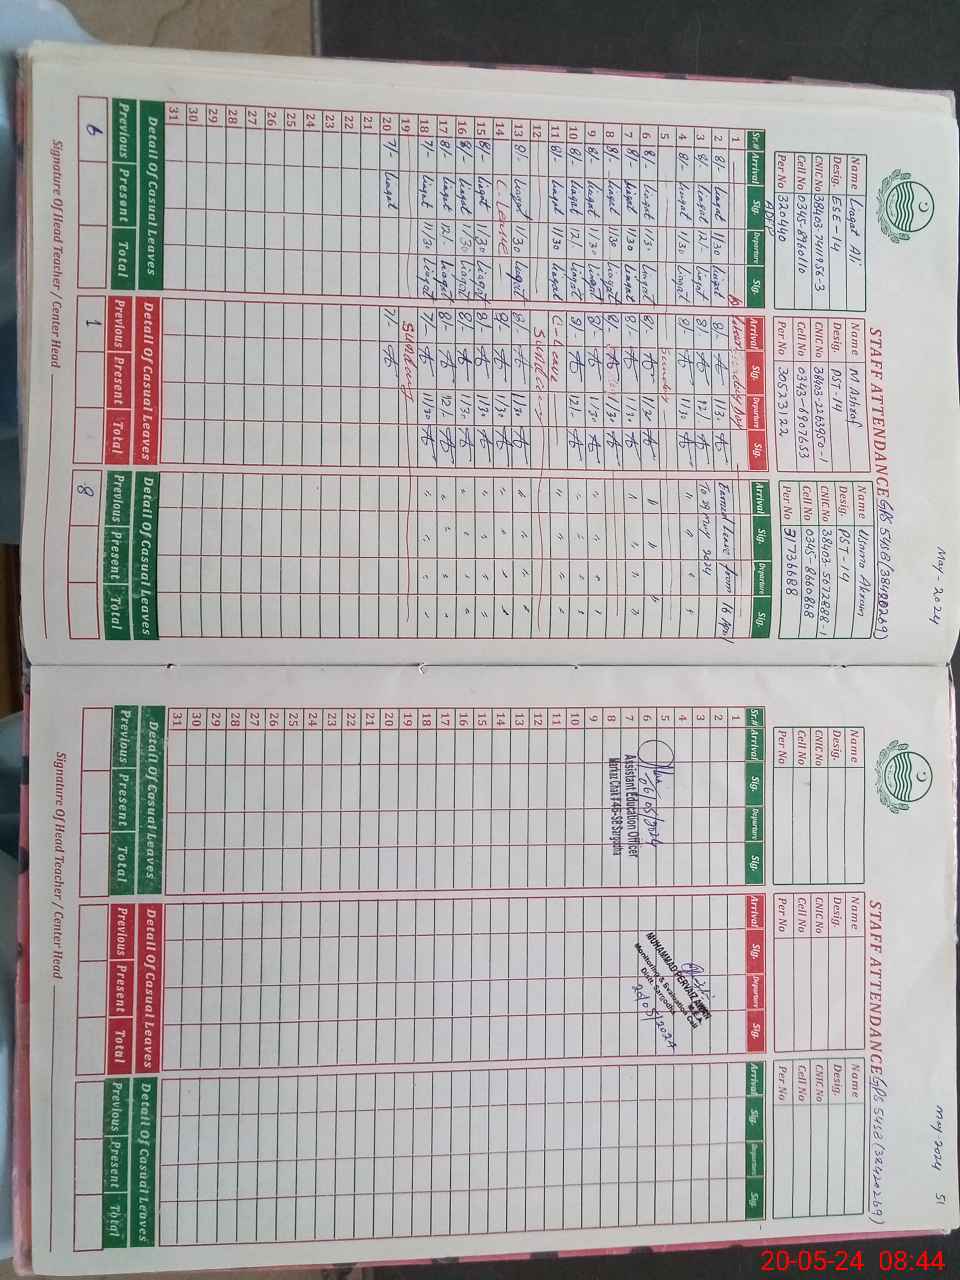 May - 2024
STAFF ATTENDANCE GPS 54SB (38420269)
Name Liaqat Ali
Desig. ESE - 14
CNIC.No 38403-7411956-3
Cell.No 0345-8960110
Per.No 320440
Name M Ashraf
Desig. PST - 14
CNIC.No 38403-2263950-1
Cell.No 0343-6907653
Per.No 30523122
Name Usama Akram
Desig. PST - 14
CNIC.No 38403-5672888-1
Cell.No 0345-8660868
Per.No 31736688
Sr.# Arrival Sig. Departure Sig. Arrival Sig. Departure Sig. Arrival Sig. Departure Sig.
1
2 8/- Liaqat 11/30 Liaqat 8/- 11/30 Earned Leave from 16 April
3 8/- Liaqat 12/- Liaqat 8/- 12/- To 29 May 2024
4 8/- Liaqat 11/30 Liaqat 8/- 11/30
5 Sunday
6 8/- Liaqat 11/30 Liaqat 8/- 11/30
7 8/- Liaqat 11/30 Liaqat 8/- 11/30
8 8/- Liaqat 11/30 Liaqat 8/- 11/30
9 8/- Liaqat 11/30 Liaqat 8/- 11/30
10 8/- Liaqat 12/- Liaqat 8/- 12/-
11 8/- Liaqat 11/30 Liaqat C-Leave
12 Sunday
13 8/- Liaqat 11/30 Liaqat 8/- 11/30
14 C-Leave 8/- 11/30
15 8/- Liaqat 11/30 Liaqat 8/- 11/30
16 8/- Liaqat 11/30 Liaqat 8/- 11/30
17 8/- Liaqat 12/- Liaqat 8/- 12/-
18 7/- Liaqat 11/30 Liaqat 7/- 11/30
19 Sunday
20 7/- Liaqat 7/-
21
22
23
24
25
26
27
28
29
30
31
Detail Of Casual Leaves Detail Of Casual Leaves Detail Of Casual Leaves
Previous Present Total Previous Present Total Previous Present Total
6 1 8
Signature Of Head Teacher / Center Head
May-2024 51
STAFF ATTENDANCE GPS 54SB (38420269)
Name
Desig.
CNIC.No
Cell.No
Per.No
Name
Desig.
CNIC.No
Cell.No
Per.No
Name
Desig.
CNIC.No
Cell.No
Per.No
Sr.# Arrival Sig. Departure Sig. Arrival Sig. Departure Sig. Arrival Sig. Departure Sig.
1
2
3
4
5
6
7
8
9
10
11
12
13
14
15
16
17
18
19
20
21
22
23
24
25
26
27
28
29
30
31
06/05/2024
Assistant Education Officer
Markaz Chak # 46-SB Sargodha
MUHAMMAD PERVAIZ
M.E.A
Monitoring & Evaluation Cell
Distt. Sargodha
20/05/2024
Detail Of Casual Leaves Detail Of Casual Leaves Detail Of Casual Leaves
Previous Present Total Previous Present Total Previous Present Total
Signature Of Head Teacher / Center Head
20-05-24 08:44